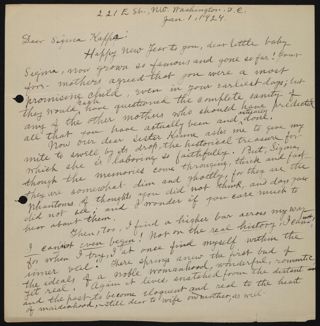 221 E St., N.W. Washington, D.C.
Jan. 1, 1924.
Dear Sigma Kappa:
Happy New Year to you, dear little baby
Sigma, now grown so famous and gone so far! Your
for- mothers agreed that you were a most
promising child, even in your earliest days; but
they would have questioned the complete sanity of
any of the other mothers who should have predicted
all that you have actually been and done.
Now our dear sister asks me to you my
mite to swell by its drop, the historical treasure for
which she is laboring so faithfully. But, Sigma,
though the memories come thronging, thick and fast
they are somewhat dim and ghostly, for they are the
phantoms of thought you did not think, and deeds you
did not see; and I wonder if you care much to
hear about them.
Then, too, I find a higher bar across my way
I cannot even begin! Not on the real history! I can't,
for when I try, I at once find myself within the
inner veil. There spring anew the first bud of
the ideals of a noble womanhood, wonderful, romantic
yet real. Again it lives, snatched from the distant
and the past to become eloquent and real to the heart
of maidenhood, - still dear to wife or mother, as well